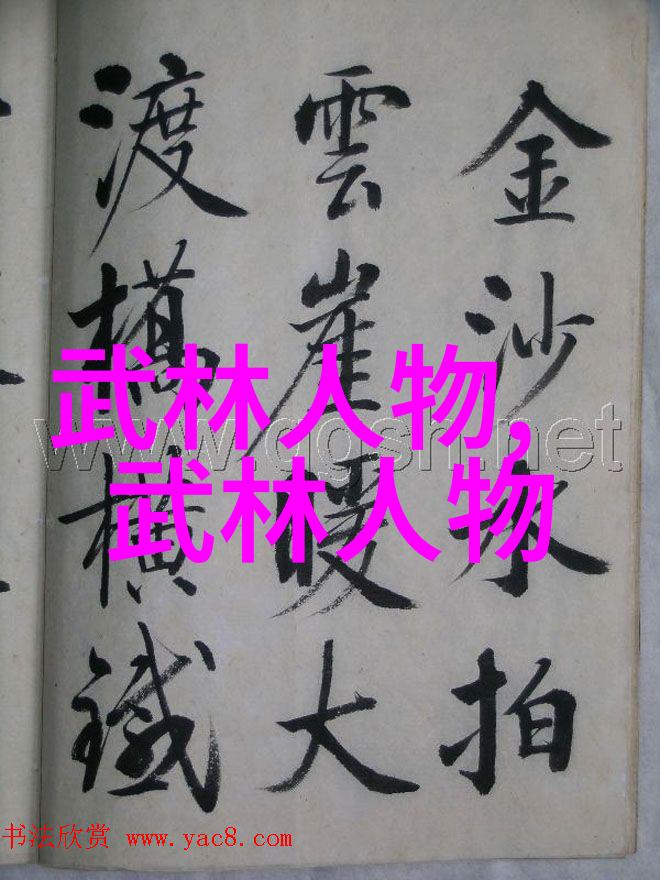 金沙水拍
雲崖暖大
渡橋橫鐵
武林人物,
武林人物
书法欣赏 www.yac8.com